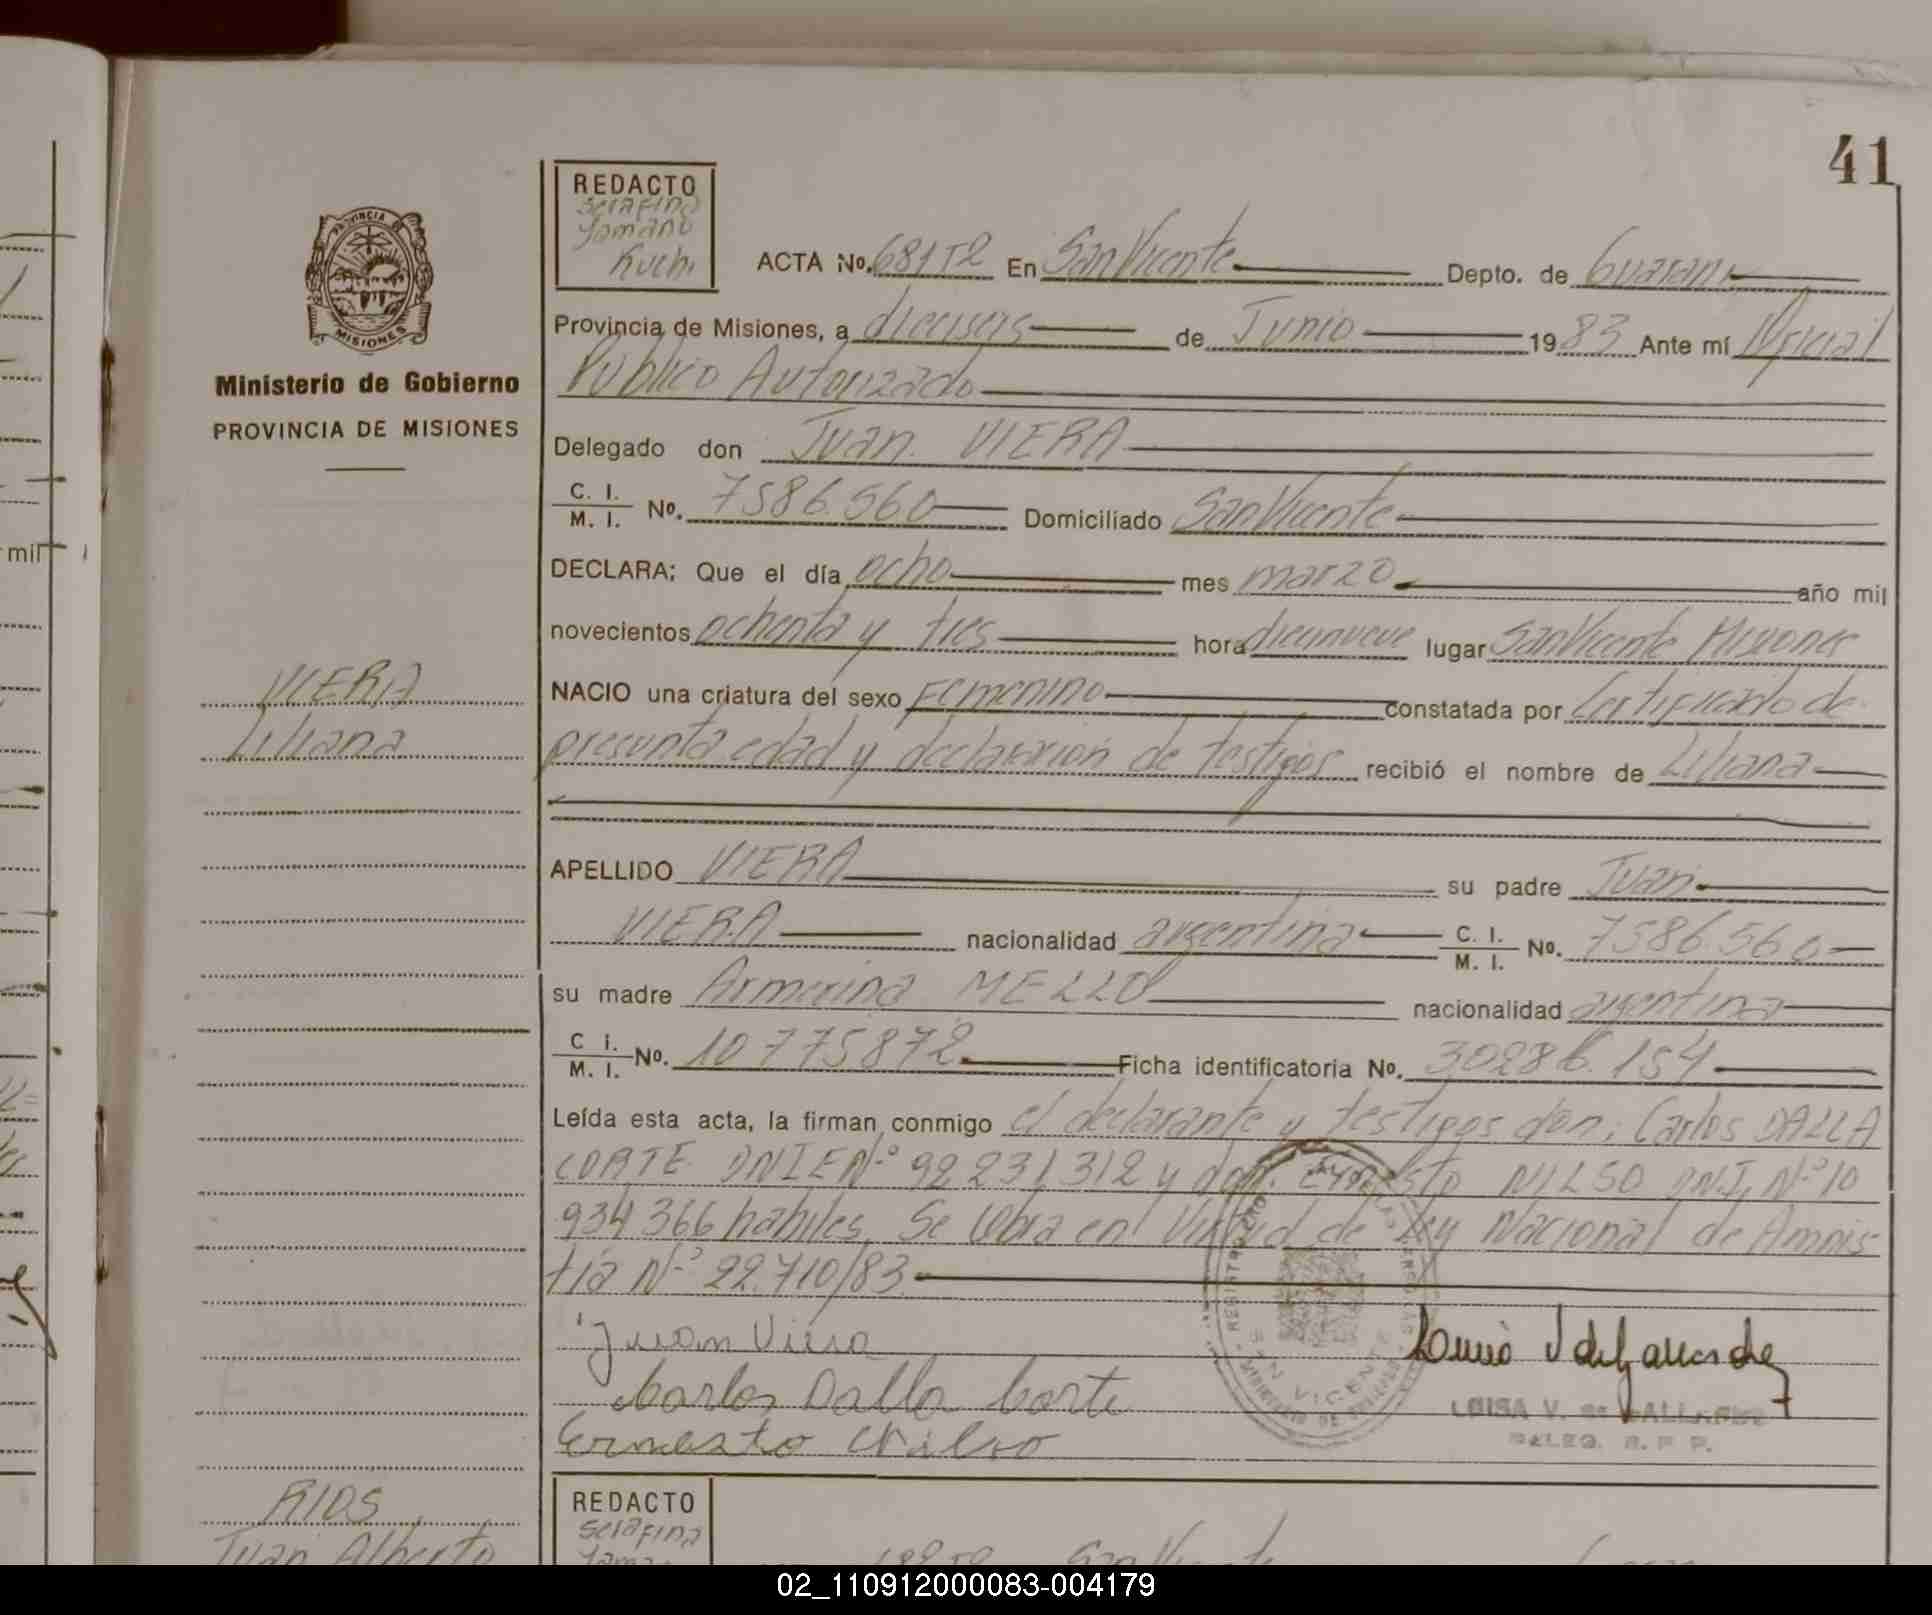 41
PROVINCIA
MISIONES
Ministerio de Gobierno
PROVINCIA DE MISIONES
mil
VIERA
Liliana
REDACTO
Serafina
Yamano
Kuchi
ACTA No. 681T2 En San Vicente Depto. de Guarani
Provincia de Misiones, a dieciseis de Junio 1983 Ante mí Oficial
Público Autorizado
Delegado don Juan VIERA
C. I. / M. I. No. 7586.560 Domiciliado San Vicente
DECLARA; Que el día ocho mes marzo año mil
novecientos ochenta y tres hora diecinueve lugar San Vicente Misiones
NACIO una criatura del sexo Femenino constatada por Certificado de
presunta edad y declaración de testigos recibió el nombre de Liliana
APELLIDO VIERA su padre Juan
VIERA nacionalidad argentina C. I. / M. I. No. 7586.560
su madre Armerina MELLO nacionalidad argentina
C. I. / M. I. No. 10775872 Ficha identificatoria No. 30286.154
Leída esta acta, la firman conmigo el declarante y testigos don: Carlos DALLA
CORTE DNIE Nº 92231312 y don: Ernesto NILSO DNI. Nº 10
934366 habiles. Se labra en Virtud de Ley Nacional de Amnis-
tía Nº 22.710/83.
Juan Viera
Carlos Dalla Corte
Ernesto Nilso
SAN VICENTE
LUISA V. de GALLARDO
DELEG. R. P. P.
RIOS
Juan Alberto
REDACTO
Serafina
San Vicente
02_110912000083-004179